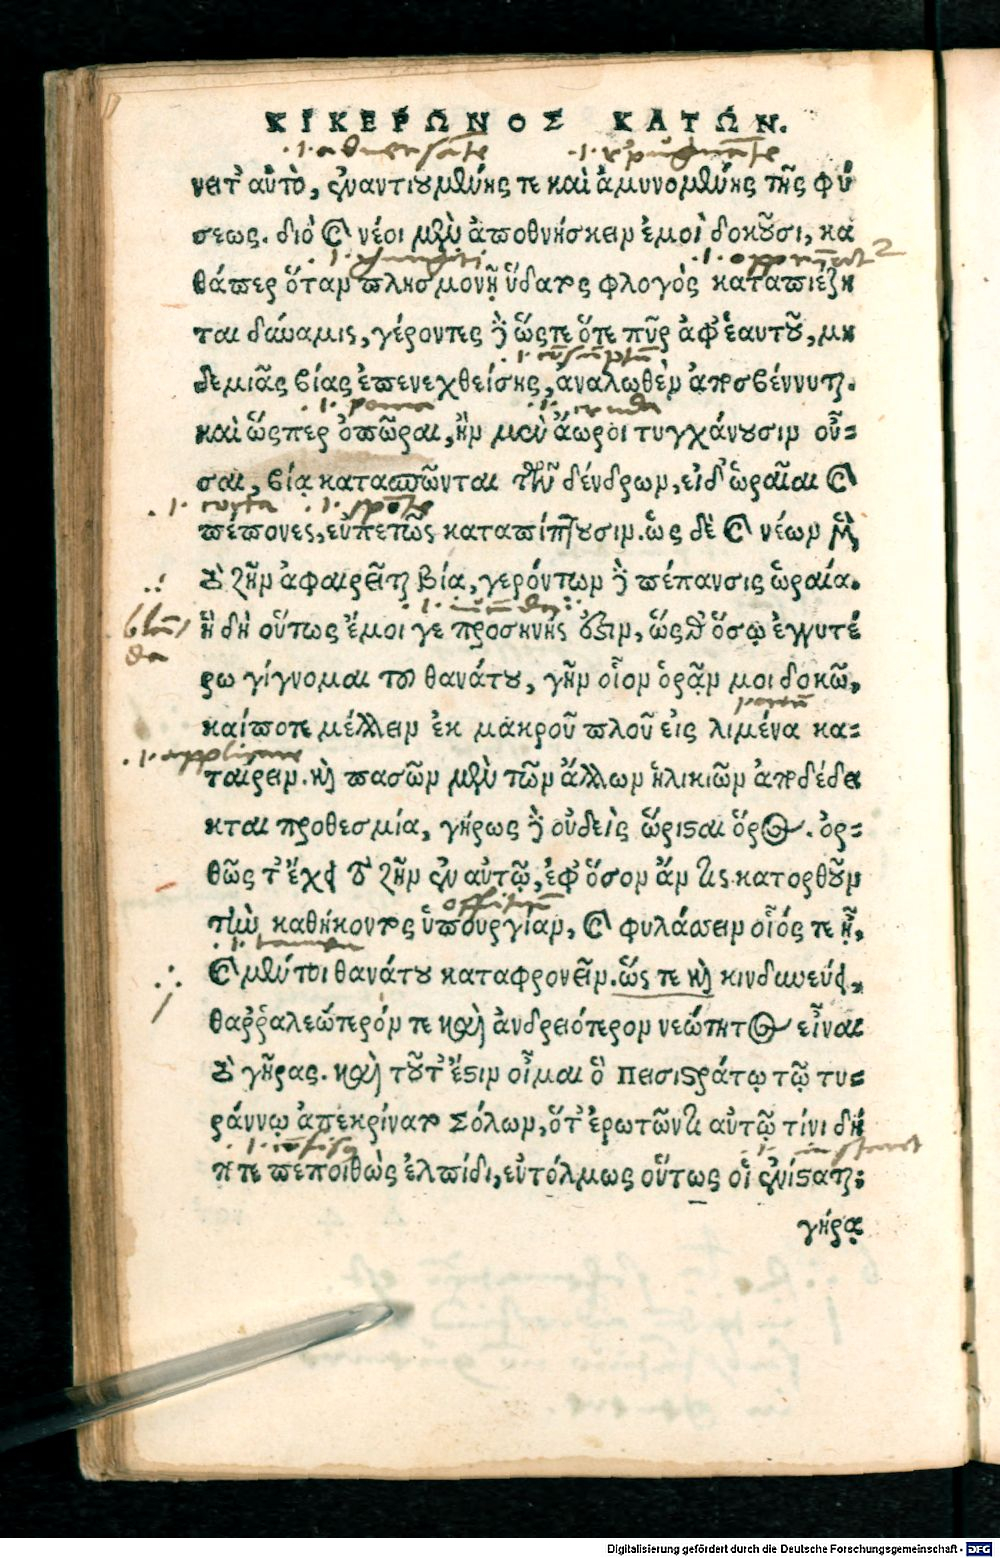 ΚΙΚΕΡΩΝΟΣ ΚΑΤΩΝ.
.i. aduersate .i. repugnate
νειτ' αὐτὸ, ἐναντιουμένης τε καὶ ἀμυνομένης τῆς φύ
σεως. διὸ οἱ νέοι μὲν ἀποθνήσκειν ἐμοὶ δοκοῦσι, κα
θάπερ ὅταν πλησμονῇ ὕδατος φλογὸς καταπιέζη
ται δύναμις, γέροντες δὲ ὥςτε ὅτε πῦρ ἀφ' ἑαυτοῦ, μη
δεμιᾶς βίας ἐπενεχθείσης, ἀναλωθὲν ἀποσβέννυται.
.i. poma .i. cruda
καὶ ὥςπερ ὀπῶραι, ἢν μὲν ἄωροι τυγχάνουσιν οὖ-
σαι, βίᾳ κατασπῶνται τῶν δένδρων, εἰ δ' ὡραῖαι καὶ
.i. cocta .i. spote
πέπονες, εὐπετῶς καταπίπτουσιν. ὡς δὲ καὶ νέων μὲν
τὸ ζῆν ἀφαιρεῖται βία, γερόντων δὲ πέπανσις ὡραία.
ἣ δὴ οὕτως ἔμοι γε προσηνής ἐστιν, ὥςτε ὅσῳ ἐγγυτέ
blan/
da
ρω γίγνομαι τοῦ θανάτου, γῆν οἷον ὁρᾷν μοι δοκῶ,
portū
καίποτε μέλλειν ἐκ μακροῦ πλοῦ εἰς λιμένα κα-
.i. applicare
ταίρειν. καὶ πασῶν μὲν τῶν ἄλλων ἡλικιῶν ἀποδέδει
κται προθεσμία, γήρως δὲ οὐδεὶς ὥρισται ὅρος. ὀρ-
θῶς τ' ἔχει τὸ ζῆν ἐν αὐτῷ, ἐφ' ὅσον ἄν τις κατορθοῦν
offitiū
τὴν καθήκοντος ὑπουργίαν, καὶ φυλάσσειν οἷός τε ᾖ,
.i. tamen
καὶ μέντοι θανάτου καταφρονεῖν. ὥς τε καὶ κινδυνεύει,
θαῤῥαλεώτερόν τε καὶ ἀνδρειότερον νεώτητος εἶναι
τὸ γῆρας. καὶ τοῦτ' ἔστιν οἶμαι ὃ Πεισιστράτῳ τῷ τυ-
ράννῳ ἀπεκρίνατο Σόλων, ὅτ' ἐρωτῶντι αὐτῷ τίνι δή
ποτε πεποιθὼς ἐλπίδι, εὐτόλμως οὕτως οἱ ἐνίσταται;
γήρᾳ
Digitalisierung gefördert durch die Deutsche Forschungsgemeinschaft - DFG